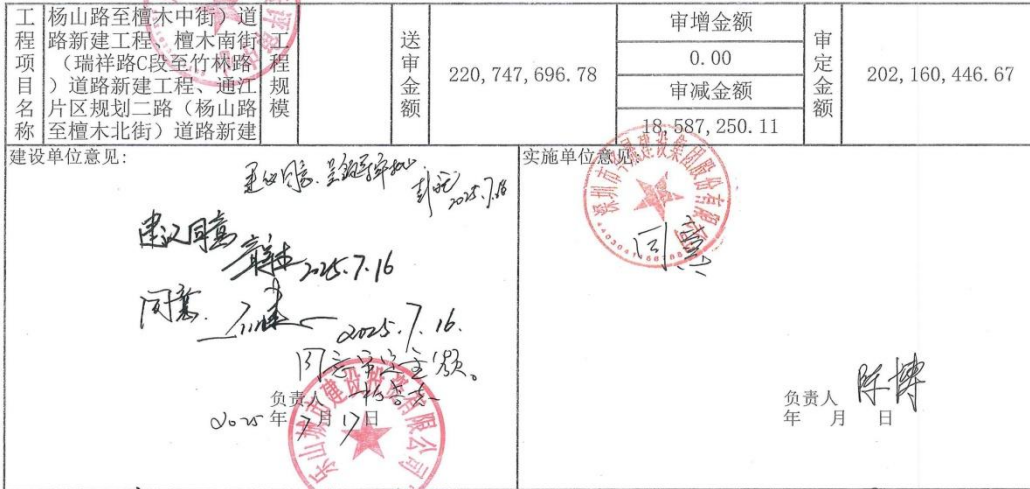 工程项目名称
杨山路至檀木中街）道
路新建工程、檀木南街
（瑞祥路C段至竹林路
）道路新建工程、通江
片区规划二路（杨山路
至檀木北街）道路新建
工程规模
送审金额
220,747,696.78
审增金额
0.00
审减金额
18,587,250.11
审定金额
202,160,446.67
建设单位意见：
建议同意.
2025.7.16
建议同意
2025.7.16
同意.
2025.7.16.
同意审定金额。
负责人
2025年7月17日
乐山城市建设投资有限公司
实施单位意见：
同意
负责人 陈博
年 月 日